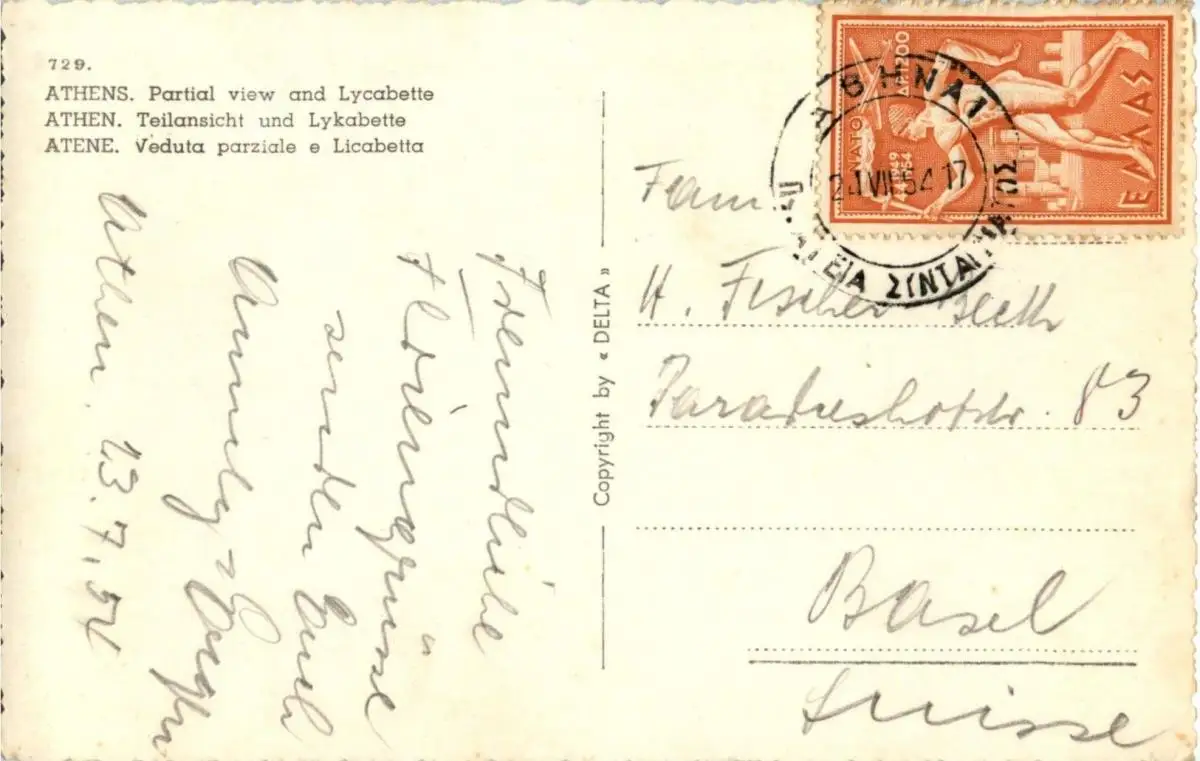 729.
ATHENS. Partial view and Lycabette
ATHEN. Teilansicht und Lykabette
ATENE. Veduta parziale e Licabetta
Freundliche
Feriengrüsse
senden Euch
Athen 13.7.54
Copyright by « DELTA »
NATO
ΔΡ.1200
1949
1954
ΕΛΛΑΣ
ΑΘΗΝΑΙ
VII 54 17
ΣΥΝΤΑΓΜΑΤΟΣ
Fam.
H. Fischer
Paradieshofstr. 83
Basel
Suisse